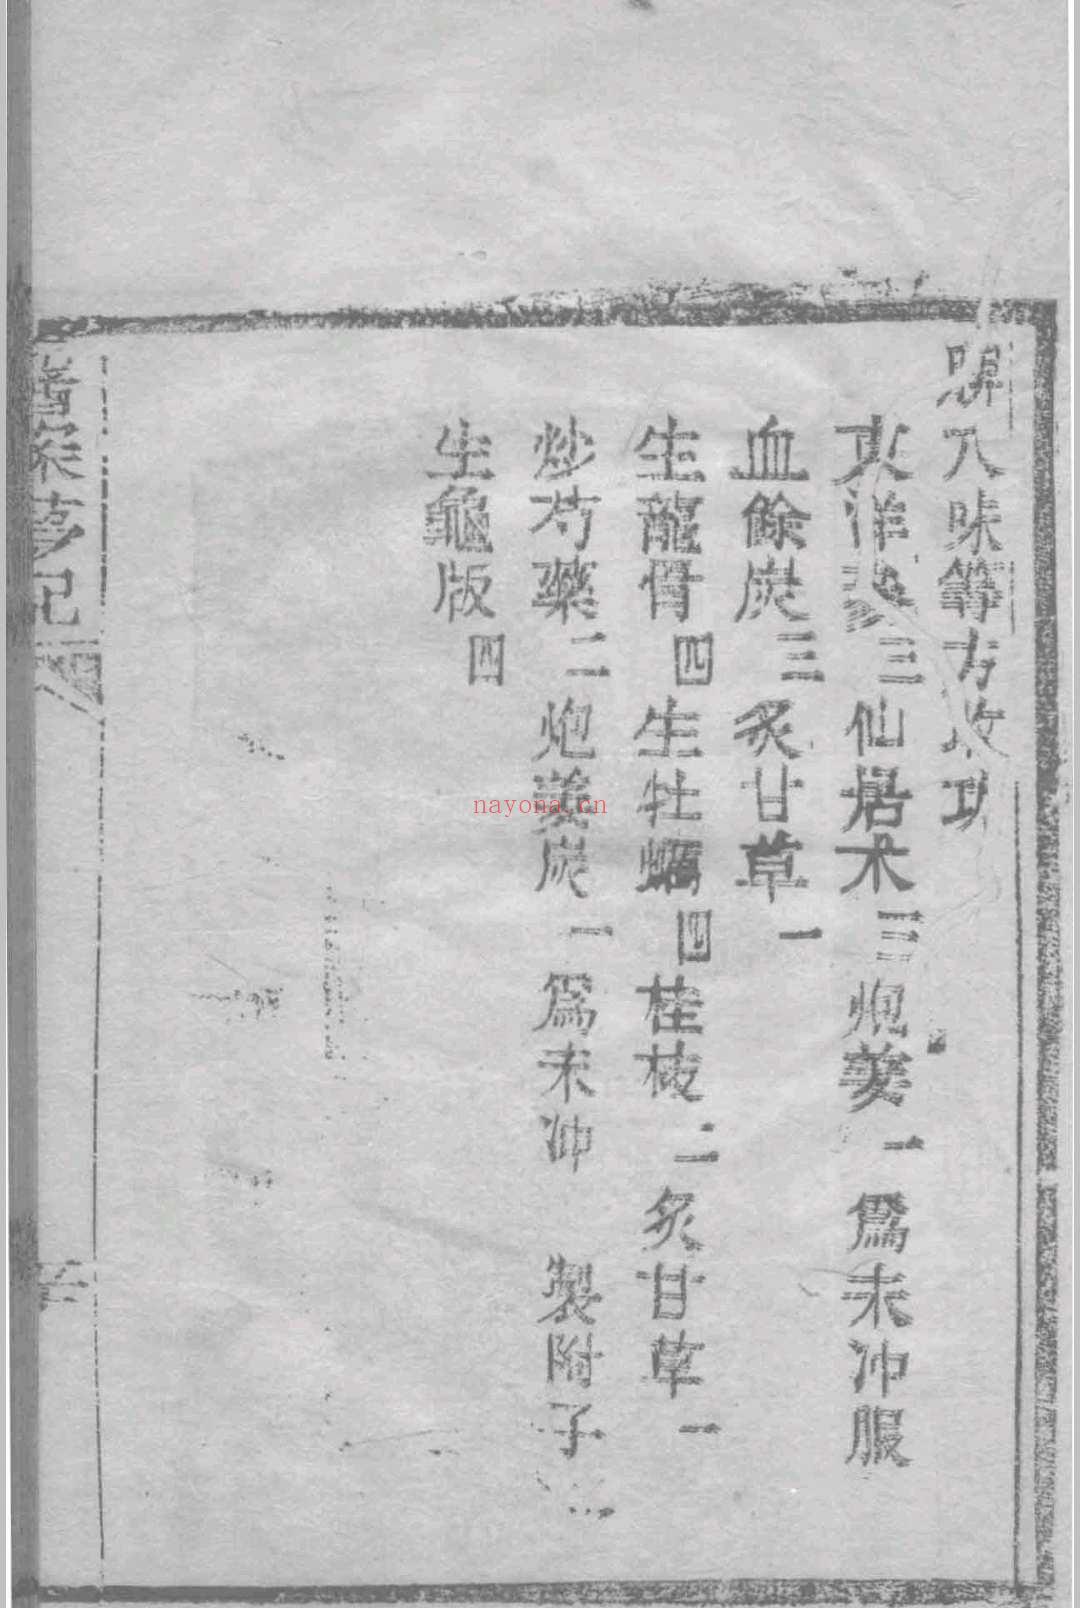 八味等方收功
東洋參三仙居朮三炮薑一爲末沖服
血餘炭三炙甘草一
生龍骨四生牡蠣四桂枝二炙甘草一
炒芍藥二炮薑炭一爲末沖 製附子
生龜版四
nayona.cn